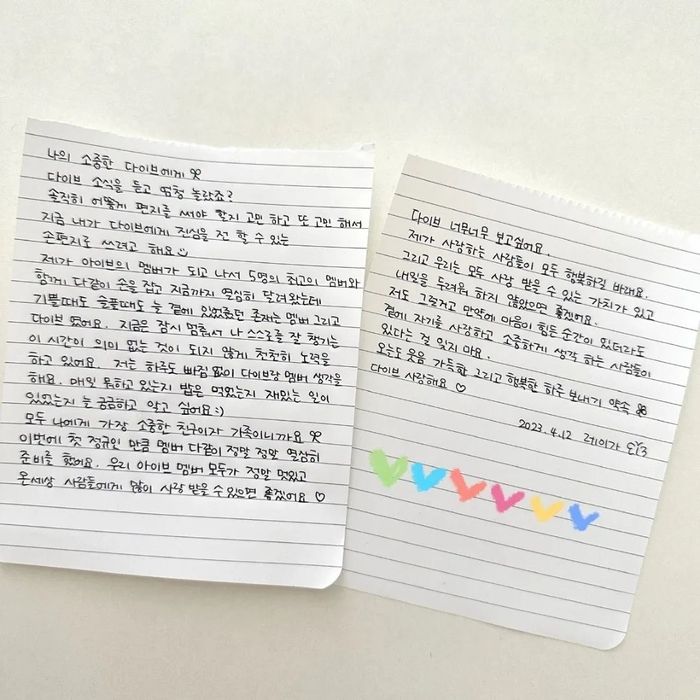 나의 소중한 다이브에게
다이브 소식을 듣고 엄청 놀랐죠?
솔직히 어떻게 편지를 써야 할지 고민 하고 또 고민 해서
지금 내가 다이브에게 진심을 전 할 수 있는
손편지로 쓰려고 해요
제가 아이브의 멤버가 되고 나서 5명의 최고의 멤버와
함께 다같이 손을 잡고 지금까지 열심히 달려왔는데
기쁠때도 슬플때도 늘 곁에 있었줬던 존재는 멤버 그리고
다이브 였어요. 지금은 잠시 멈춤서 나 스스로를 잘 챙기는
이 시간이 의미 없는 것이 되지 않게 천천히 노력을
하고 있어요. 저는 하루도 빠짐 없이 다이브랑 멤버 생각을
해요. 매일 못하고 있는지 밥은 먹었는지 재밌는 일이
있었는지 늘 궁금하고 알고 싶어요 :)
모두 나에게 가장 소중한 친구이자 가족이니까요
이번에 첫 정규인 만큼 멤버 다같이 정말 정말 열심히
준비를 했어요. 우리 아이브 멤버 모두가 정말 멋있고
온세상 사람들에게 많이 사랑 받을 수 있으면 좋겠어요 ♡
다이브 너무너무 보고싶어요.
제가 사랑하는 사람들이 모두 행복하길 바래요.
그리고 우리는 모두 사랑 받을 수 있는 가치가 있고
내일을 두려워 하지 않았으면 좋겠어요.
저도 그렇고 만약에 마음이 힘든 순간이 있더라도
곁에 자기를 사랑하고 소중하게 생각 하는 사람들이
있다는 걸 잊지 마요.
오늘도 웃음 가득한 그리고 행복한 하루 보내기 약속
다이브 사랑해요 ♡
2023.4.12 레이가